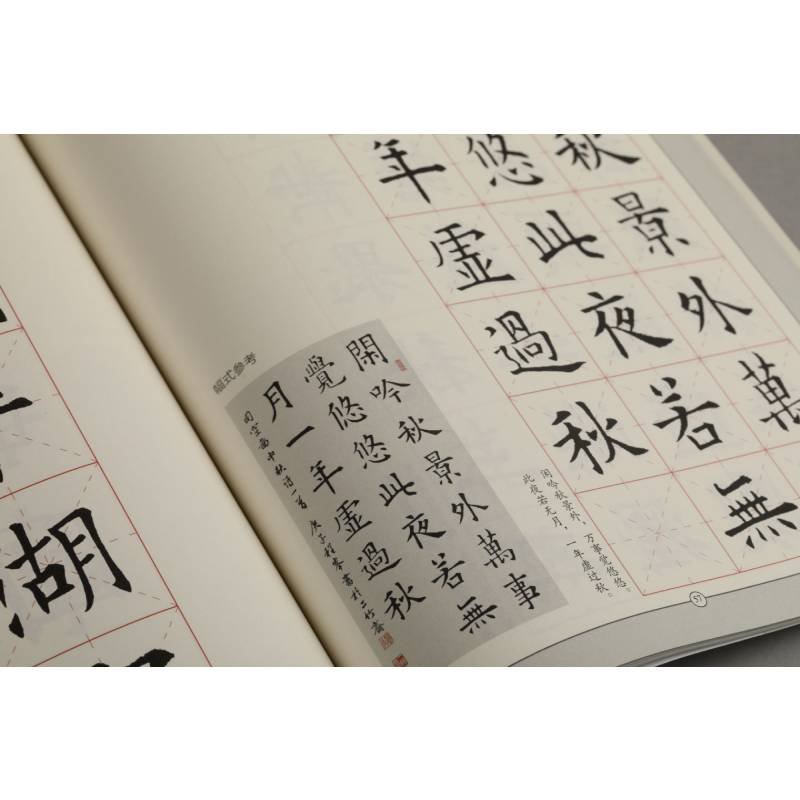 秋景外萬
悠此夜若無
年虛過秋
幅式參考
閑吟秋景外萬事
覺悠悠此夜若無
月一年虛過秋
司空啚中秋诗一首 庚子程峯書於三竹齋
闲吟秋景外，万事觉悠悠。
此夜若无月，一年虚过秋。
57
湖